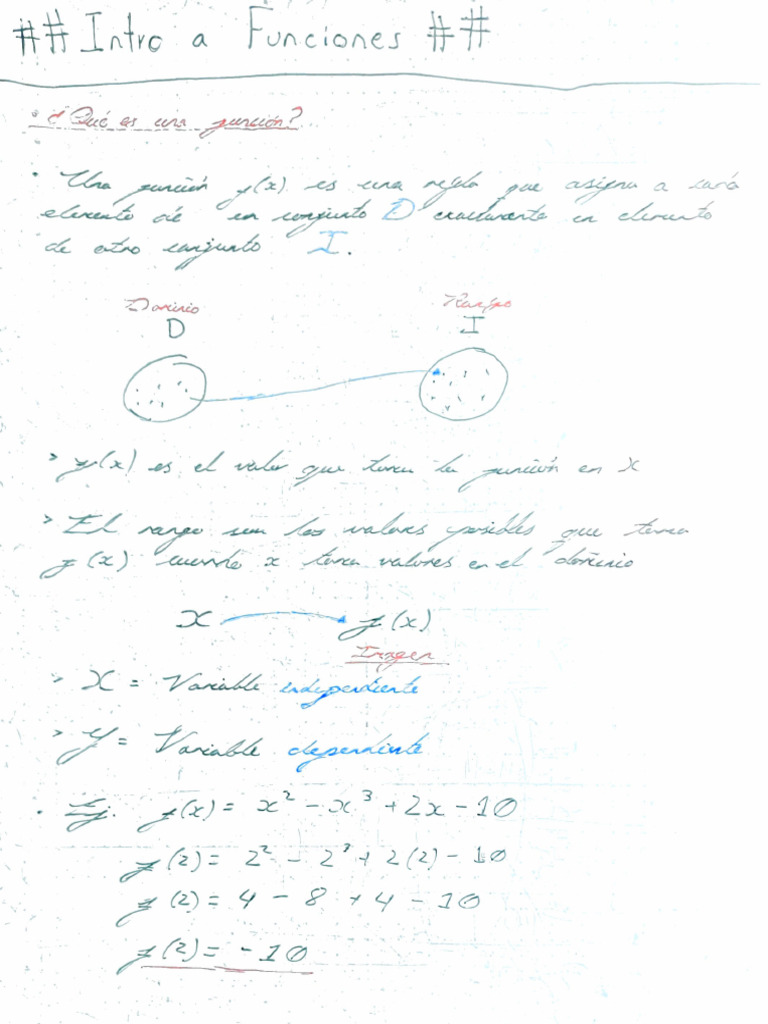 ## Intro a Funciones ##
• ¿Qué es una función?
• Una función f(x) es una regla que asigna a cada
elemento de un conjunto D exactamente un elemento
de otro conjunto I.
Dominio Rango
D I
> f(x) es el valor que toma la función en x
> El rango son los valores posibles que toma
f(x) cuando x toma valores en el dominio
x f(x)
Imagen
> X = Variable independiente
> Y = Variable dependiente
• Ej. f(x) = x² - x³ + 2x - 10
f(2) = 2² - 2³ + 2(2) - 10
f(2) = 4 - 8 + 4 - 10
f(2) = -10